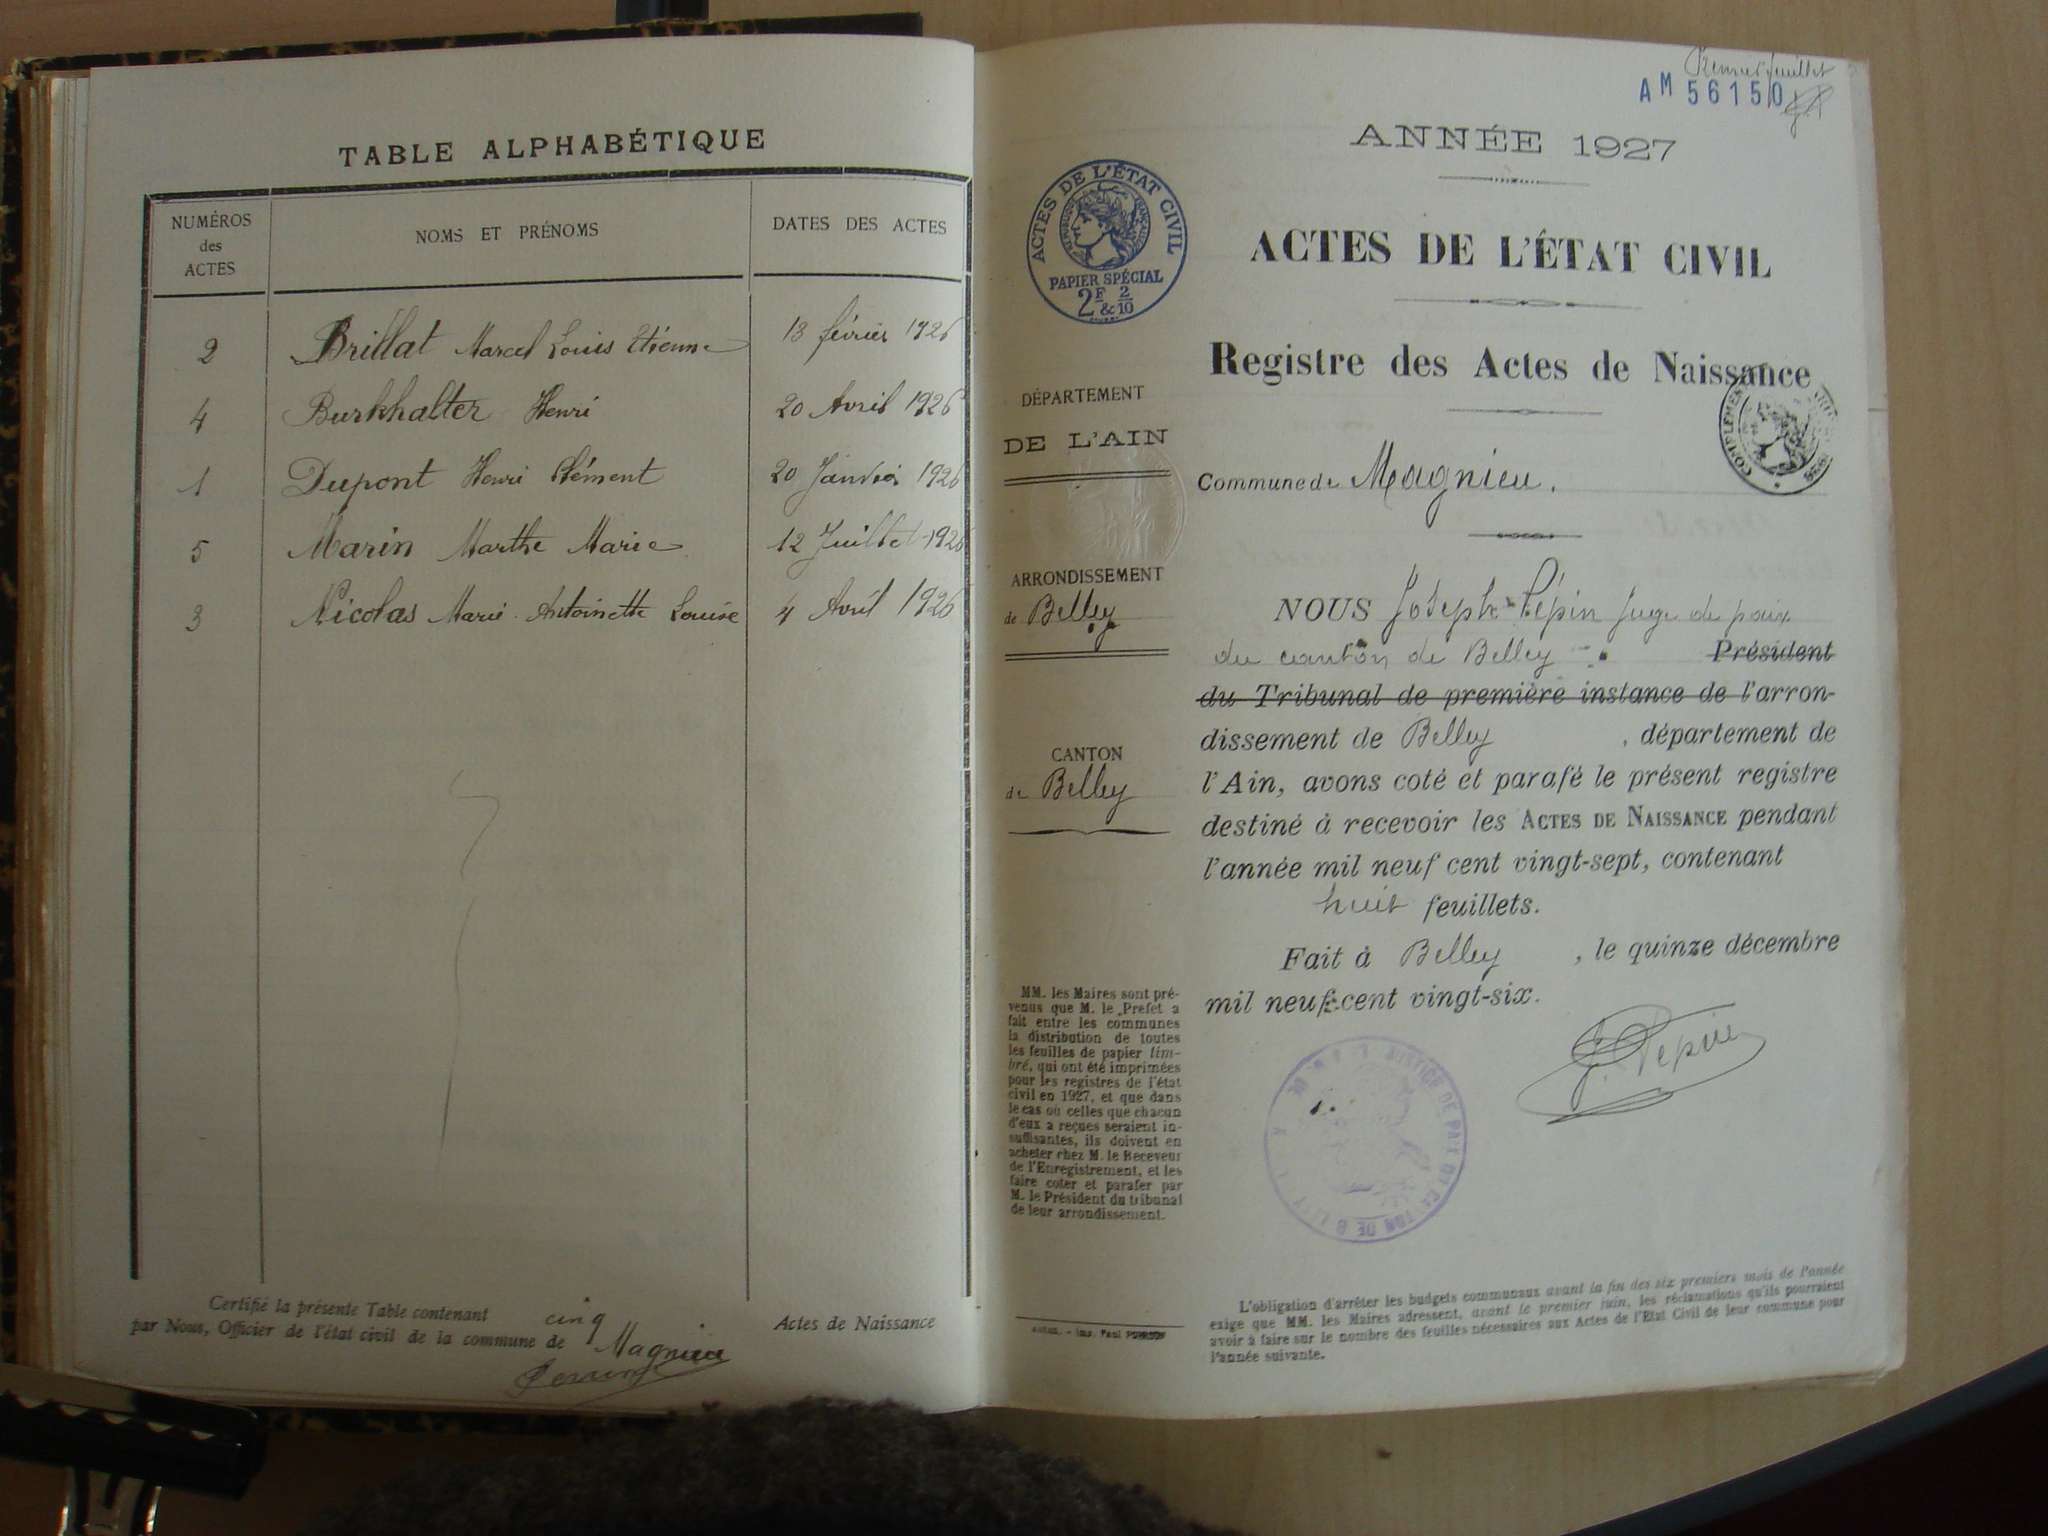 TABLE ALPHABÉTIQUE
NUMÉROS
des
ACTES
NOMS ET PRÉNOMS
DATES DES ACTES
2 Brillat Marcel Louis Etienne 18 février 1926
4 Burkhalter Henri 20 Avril 1926
1 Dupont Henri Clément 20 Janvier 1926
5 Marin Marthe Marie 12 Juillet 1926
3 Nicolas Marie Antoinette Louise 4 Avril 1926
Certifié la présente Table contenant cinq Actes de Naissance
par Nous, Officier de l'état civil de la commune de Magnieu
Premier feuillet
AM 56150
ANNÉE 1927
ACTES DE L'ÉTAT CIVIL
RÉPUBLIQUE FRANÇAISE
PAPIER SPÉCIAL
2F & 2/10
ACTES DE L'ÉTAT CIVIL
Registre des Actes de Naissance
COMPLÉMENT
DÉPARTEMENT
DE L'AIN
Commune de Magnieu.
ARRONDISSEMENT
de Belley
CANTON
de Belley
NOUS Joseph Pépin Juge de paix
du canton de Belley Président
du Tribunal de première instance de l'arron-
dissement de Belley, département de
l'Ain, avons coté et parafé le présent registre
destiné à recevoir les ACTES DE NAISSANCE pendant
l'année mil neuf cent vingt-sept, contenant
huit feuillets.
Fait à Belley, le quinze décembre
mil neuf cent vingt-six.
J. Pepin
JUSTICE DE PAIX DU CANTON DE BELLEY
MM. les Maires sont pré-
venus que M. le Préfet a
fait entre les communes
la distribution de toutes
les feuilles de papier tim-
bré, qui ont été imprimées
pour les registres de l'état
civil en 1927, et que dans
le cas où celles que chacun
d'eux a reçues seraient in-
suffisantes, ils doivent en
acheter chez M. le Receveur
de l'Enregistrement, et les
faire coter et parafer par
M. le Président du tribunal
de leur arrondissement.
Imp. Paul
L'obligation d'arrêter les budgets communaux avant la fin des six premiers mois de l'année
exige que MM. les Maires adressent, avant le premier juin, les réclamations qu'ils pourraient
avoir à faire sur le nombre des feuilles nécessaires aux Actes de l'Etat Civil de leur commune pour
l'année suivante.